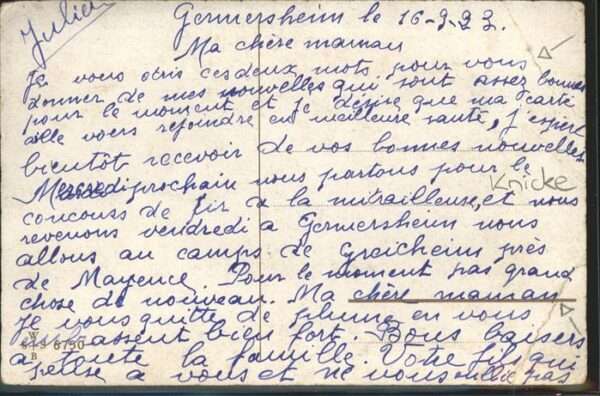 Julien
Germersheim le 16-9-23.
Ma chère maman
Je vous ecris ces deux mots pour vous
donner de mes nouvelles qui sont assez bonnes
pour le moment et je désire que ma carte
aille vous rejoindre en meilleure santé, j'espère
bientôt recevoir de vos bonnes nouvelles
Mercredi prochain nous partons pour le
Knicke
concours de tir a la mitrailleuse, et nous
revenons vendredi a Germersheim nous
allons au camps de Greicheim près
de Mayence. Pour le moment pas grand
chose de nouveau. Ma chère maman
je vous quitte de plume en vous
embrassent bien fort. Bons baisers
W
B
a toute la famille. Votre fils qui
pense a vous et ne vous oublie pas